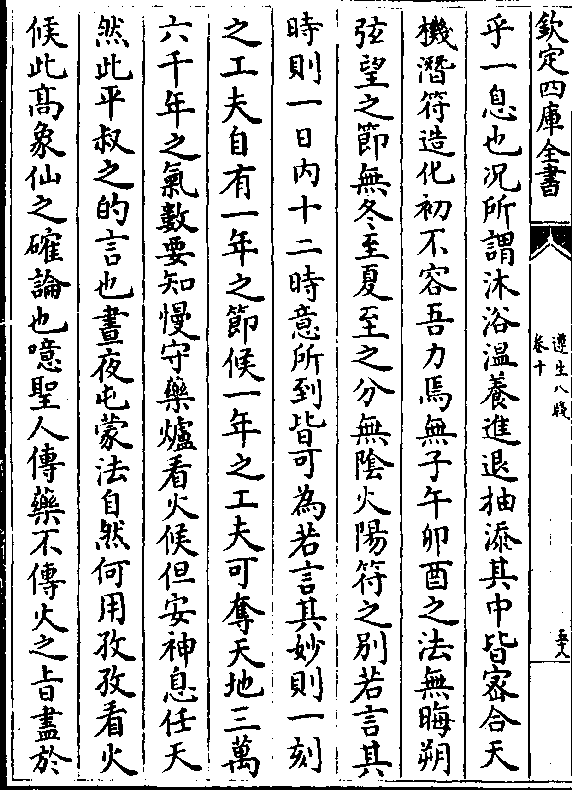 欽定四庫全書
遵生八牋
卷十
五八
乎一息也况所謂沐浴溫養進退抽添其中皆宻合天
機潛符造化初不容吾力焉無子午卯酉之法無晦朔
弦望之節無冬至夏至之分無陰火陽符之别若言其
時則一日内十二時意所到皆可為若言其妙則一刻
之工夫自有一年之節候一年之工夫可奪天地三萬
六千年之氣數要知慢守藥爐看火候但安神息任天
然此平叔之的言也晝夜屯蒙法自然何用孜孜看火
候此髙象仙之確論也噫聖人傳藥不傳火之旨盡於